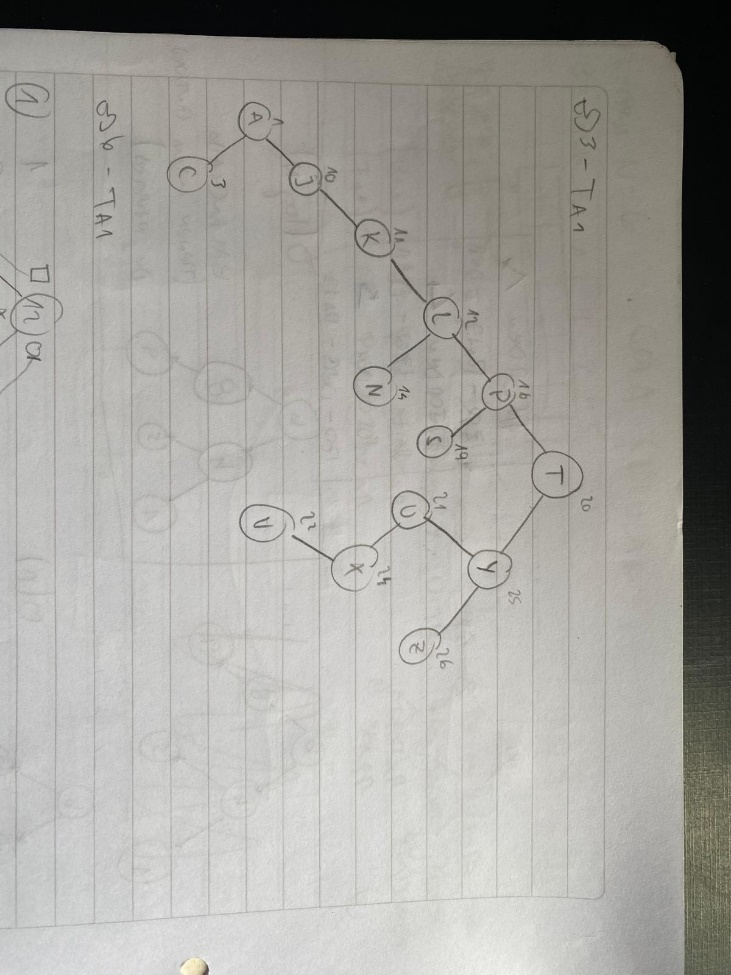 S) 3 - TA1
T 20
P 16 Y 25
L 12 S 19 U 21 Z 26
K 11 N 14 X 24
J 10
A 1 V 22
C 3
S) 6 - TA1
1 12